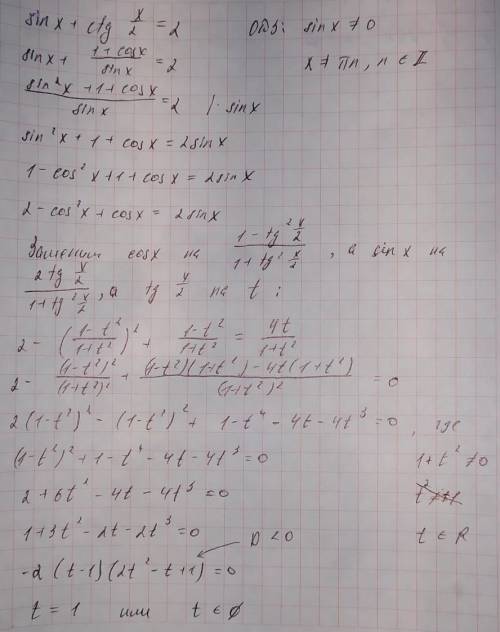 sin x + ctg x/2 = 2 ОДЗ: sin x ≠ 0
sin x + (1 + cos x)/(sin x) = 2 x ≠ πn, n ∈ Z
(sin²x + 1 + cos x)/(sin x) = 2 | · sin x
sin²x + 1 + cos x = 2 sin x
1 - cos²x + 1 + cos x = 2 sin x
2 - cos²x + cos x = 2 sin x
Заменим cos x на (1 - tg² x/2)/(1 + tg² x/2), а sin x на
(2 tg x/2)/(1 + tg² x/2), а tg x/2 на t:
2 - ((1 - t²)/(1 + t²))² + (1 - t²)/(1 + t²) = 4t/(1 + t²)
2 - (1 - t²)²/(1 + t²)² + ((1 - t²)(1 + t²) - 4t(1 + t²))/(1 + t²)² = 0
2(1 - t²)² - (1 - t²)² + 1 - t⁴ - 4t - 4t³ = 0, где
(1 - t²)² + 1 - t⁴ - 4t - 4t³ = 0 1 + t² ≠ 0
2 + 6t² - 4t - 4t³ = 0
1 + 3t² - 2t - 2t³ = 0 D < 0 t ∈ R
-2(t - 1)(2t² - t + 1) = 0
t = 1 или t ∈ ∅